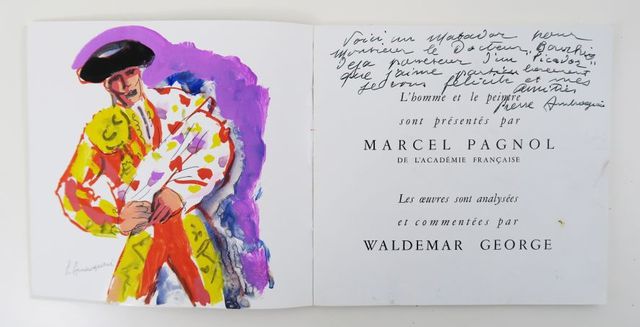 Voici un matador pour
Monsieur le Docteur
déjà possesseur d'un "Picador"
que j'aime particulièrement
Je vous félicite et mes
amitiés
Pierre Ambrogiani
L'homme et le peintre
sont présentés par
MARCEL PAGNOL
DE L'ACADÉMIE FRANÇAISE
Les œuvres sont analysées
et commentées par
WALDEMAR GEORGE